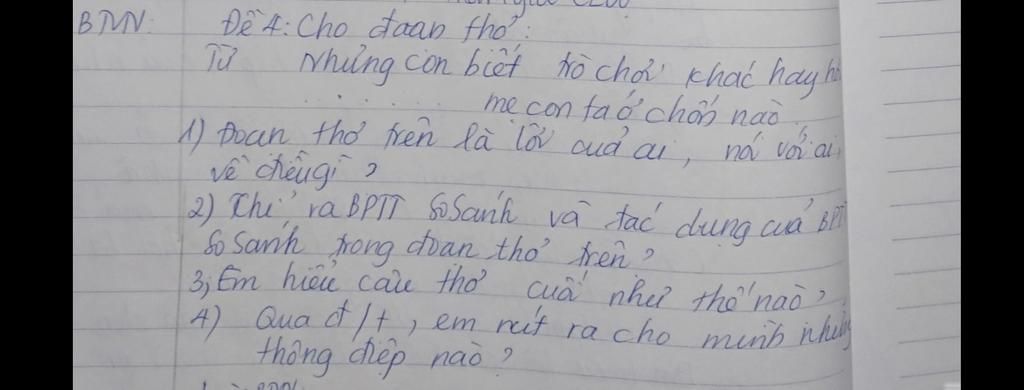 BTVN: Đề 4: Cho đoạn thơ:
Từ Nhưng con biết trò chơi khác hay
mẹ con ta ở chốn nào.
1) Đoạn thơ trên là lời của ai, nói với ai,
về điều gì?
2) Chỉ ra BPTT so sánh và tác dụng của
so sánh trong đoạn thơ trên?
3, Em hiểu câu thơ cuối như thế nào?
4) Qua đ/t, em rút ra cho mình những
thông điệp nào?